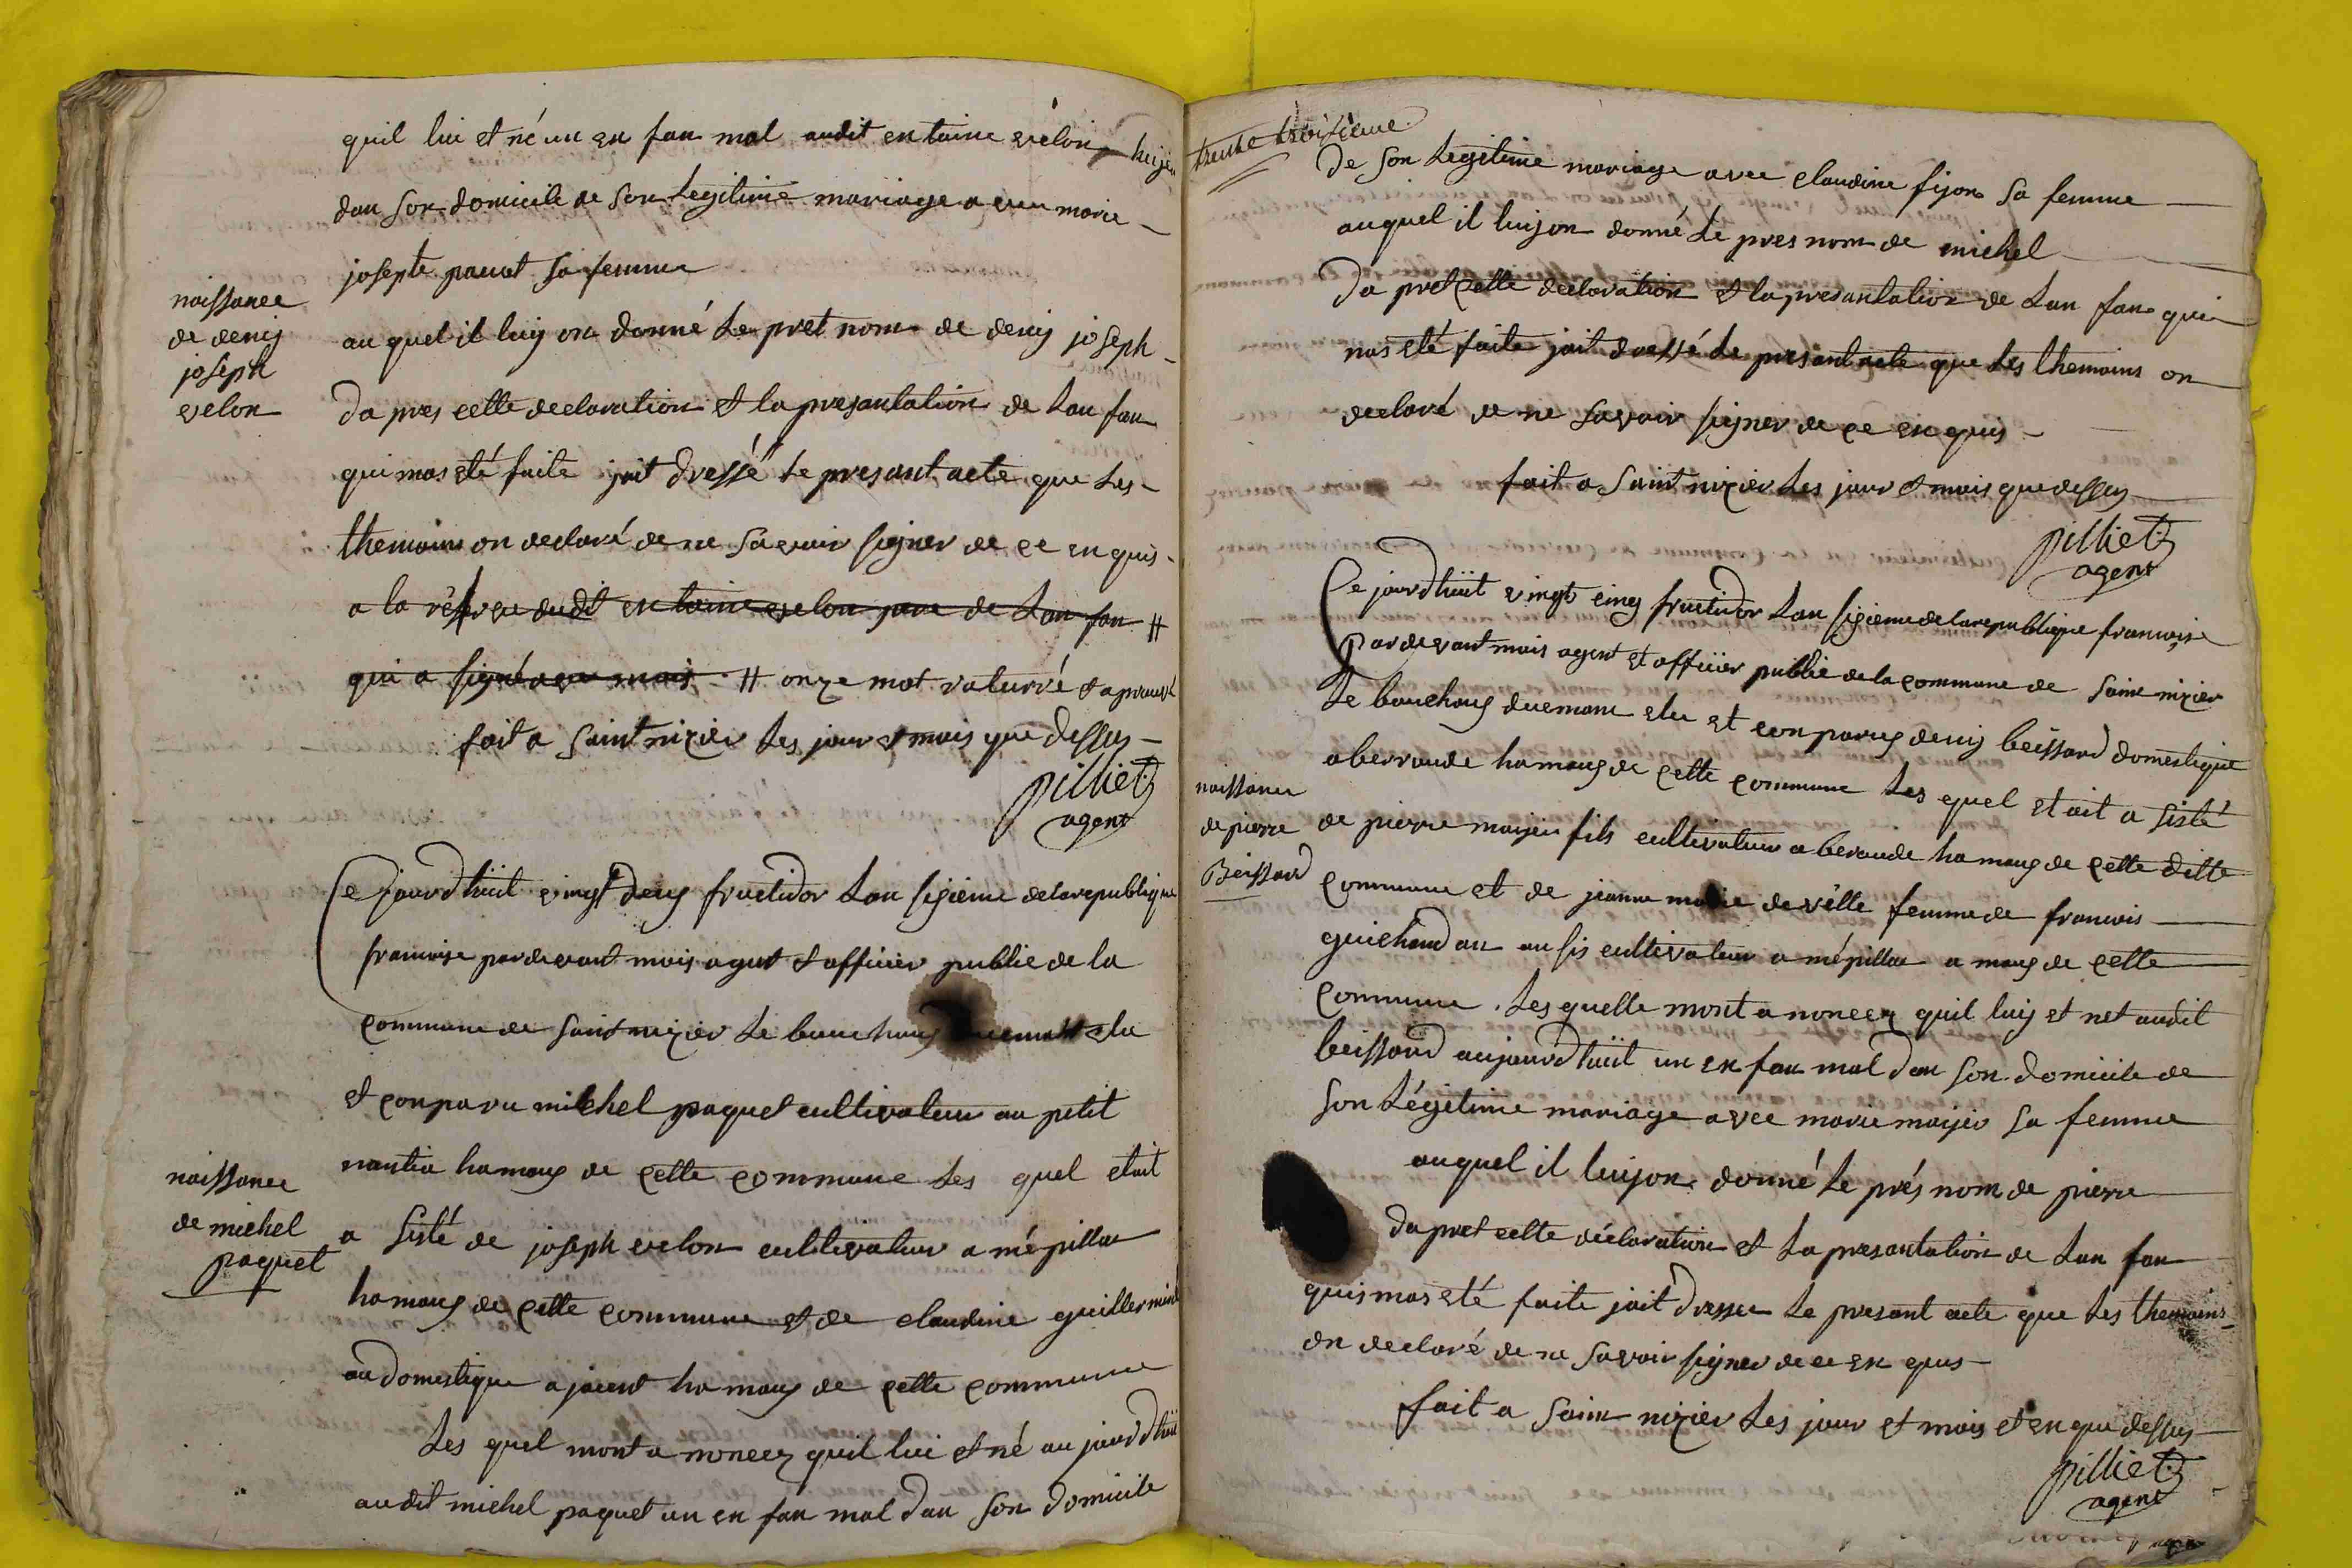 quil lui et né un en fan mal audit en toine velon huijen
dan son domicile de son Legitime mariage a vecu marie
josepte pauvat sa femme
naissance
de denij
joseph
velon
au quel il luij on donné Le pret nom de denij joseph
da pres cette declaration et la presantation de Lan fan
qui mas eté faite jait dressé Le presant acte que Les
themoins on declaré de ne savoir signer de ce en quis
a la réserve dudit en toine velon pere de Lan fan #
qui a signé avec mois # onze mot raturré et aprouvé
fait a saint nizier Les jour et mois que dessus
pilliet
agent
Ce jourdhuit vingt deuy fructidor Lan sizieme delarepublique
francoise pardevant mois agent et officier public de la
commune de saint nizier Le bouchouy elu
et conparu michel paquet cultivateur au petit
nantia hamauy de cette commune Les quel etait
naissance
de michel
paquet
a sisté de joseph velon cultivateur a mépillat
hamauy de cette commune et de claudine guillermin
au domestique a jacent hamauy de cette commune
Les quel mont a noncez quil lui et né au jourdhui
audit michel paquet un en fan mal dan son domicile
trente troisieme
de son Legitime mariage avec claudine fijon sa femme
auquel il luijon donné Le pres nom de michel
Da pret cette declaration et la presantation de Lan fan qui
mas eté faite jait dressé Le presant acte que Les themoins on
declaré de ne savoir signer de ce en quis
fait a saint nizier Les jour et mois que dessus
pilliet
agent
Ce jourdhuit vingt cinq fructidor Lan sizieme delarepublique francoise
pardevant mois agent et officier public de la commune de saint nizier
Le bouchouy duemant elu et conparuy denij beissard domestique
a berroude hamauy de cette commune Les quel etait a sisté
naissance
de pierre
Beissard
de pierre maijer fils cultivateur a beroude hamauy de cette ditte
commune et de jeanne marie deville femme de francois
guichard an ausis cultivateur a mépillat a mauy de cette
commune . Lesquelle mont a noncez quil luij et net audit
beissard aujourdhuit un en fan mal dan son domicile de
son Légitime mariage avec marie maijer sa femme
auquel il luijon donné Le prés nom de pierre
dapret cette déclaration et La presantation de Lan fan
quismas eté faite jait dresser Le presant acte que Les themoins
on declaré de ne savoir signer de ce en quis
fait a saint nizier Les jour et mois et en que dessus
pilliet
agent